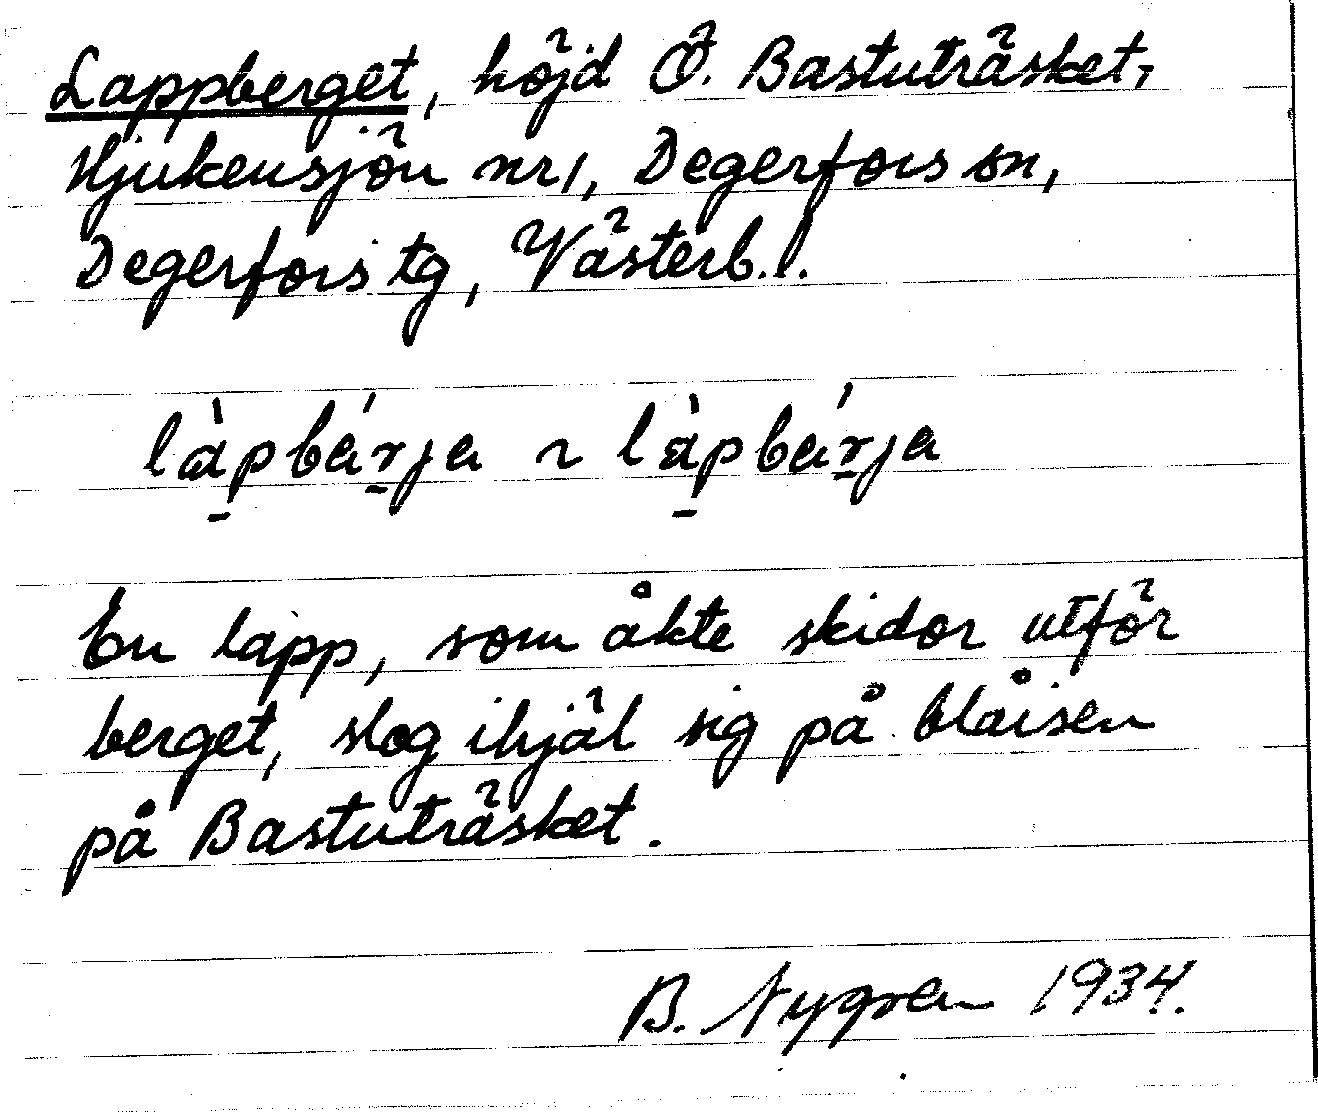 Lappberget, höjd Ö. Bastuträsket,
Hjukensjön nr 1, Degerfors sn,
Degerfors tg, Västerb. l.
là̱pbár̠ja ~ lä̱̀pbár̠ja
En lapp, som åkte skidor utför
berget, slog ihjäl sig på blåisen
på Bastuträsket.
B. Nygren 1934.